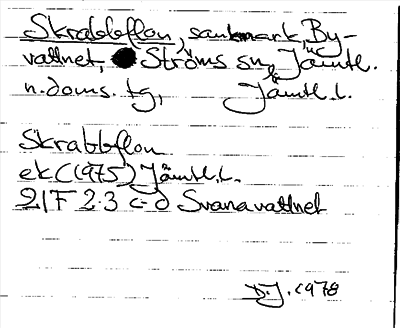 Skrabbflon, sankmark, By-
vattnet, Ströms sn, Jämtl.
n. doms. tg, Jämtl. l.
Skrabbflon
ek (1975) Jämtl. l.
21F 2-3 c-d Svanavattnet
B.J. 1978